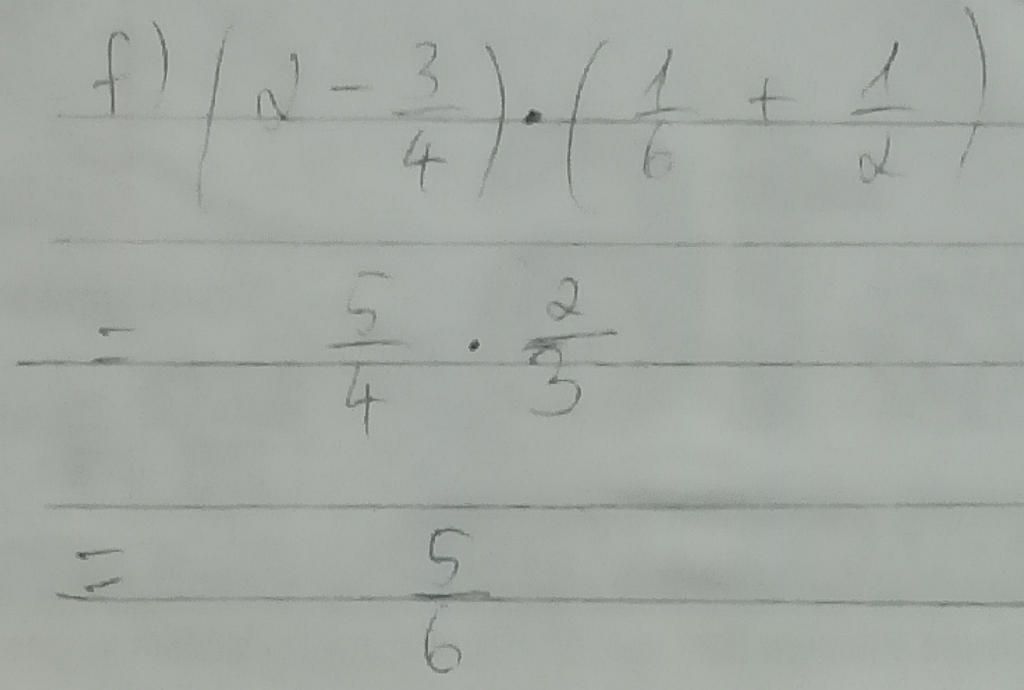 f) (2 - 3/4) · (1/6 + 1/2)
= 5/4 · 2/3
= 5/6